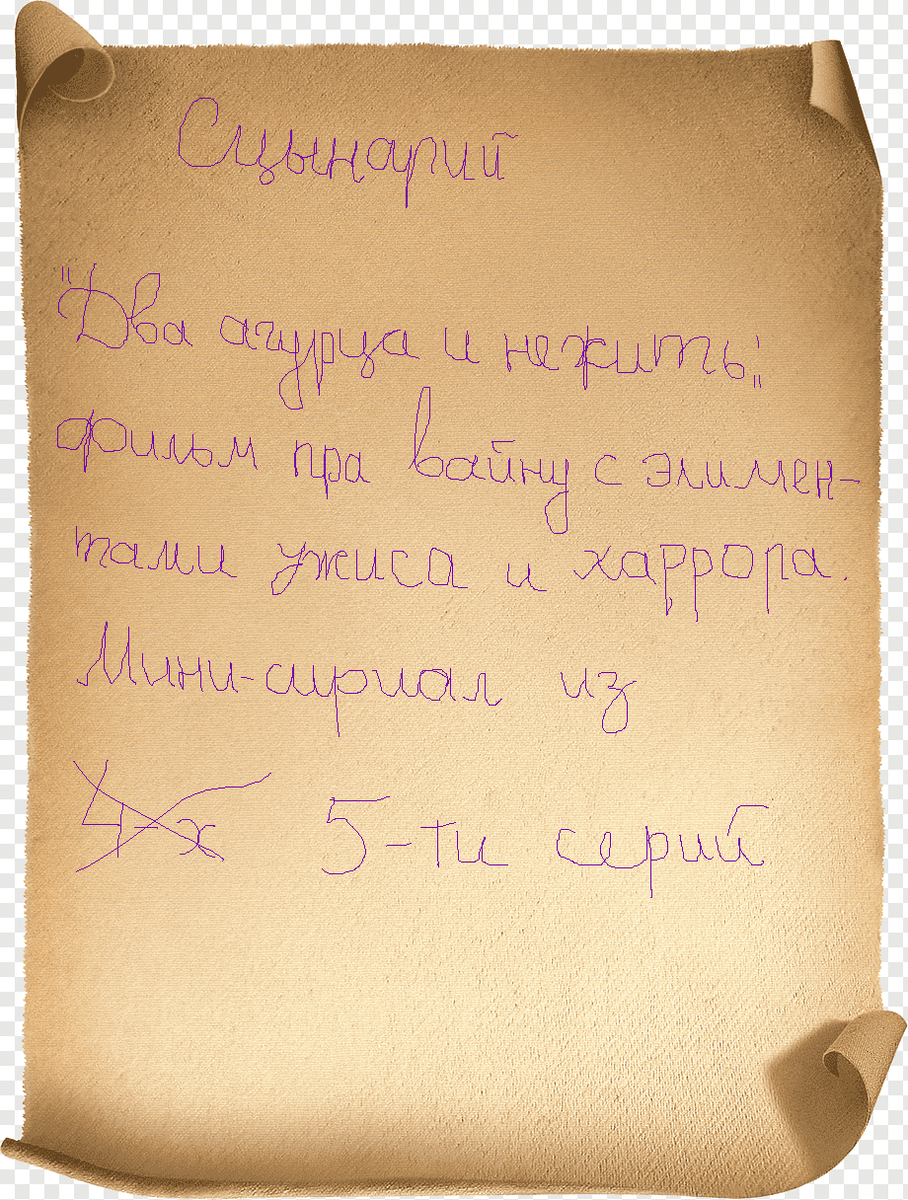 Сцынарий
"Два агурца и нежить".
фильм пра вайну с элимен-
тами ужиса и харрора.
Мини-сириал из
4-х 5-ти серий